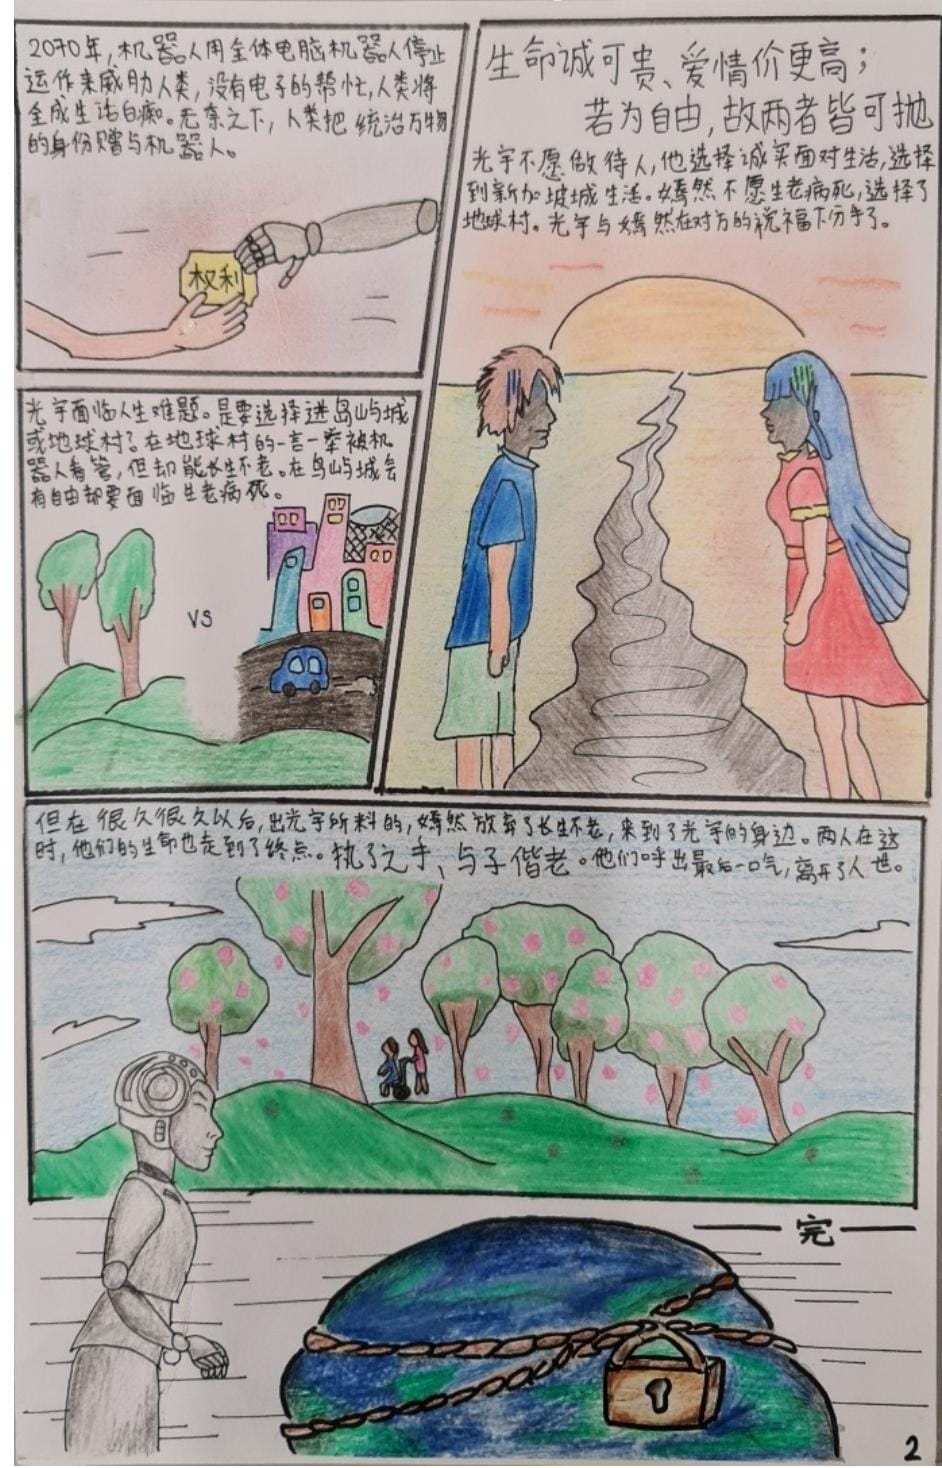 2070年，机器人用全体电脑机器人停止
运作来威胁人类，没有电子的帮忙，人类将
全成生活白痴。无奈之下，人类把统治万物
的身份赠与机器人。
权利
生命诚可贵、爱情价更高；
若为自由，故两者皆可抛
光宇不愿做待人，他选择诚实面对生活，选择
到新加坡城生活。嫣然不愿生老病死，选择了
地球村。光宇与嫣然在对方的祝福下分手了。
光宇面临人生难题。是要选择进岛屿城
或地球村？在地球村的一言一举被机
器人看管，但却能长生不老。在岛屿城会
有自由却要面临生老病死。
VS
但在很久很久以后，出光宇所料的，嫣然放弃了长生不老，来到了光宇的身边。两人在这
时，他们的生命也走到了终点。执子之手、与子偕老。他们呼出最后一口气，离开了人世。
完
2